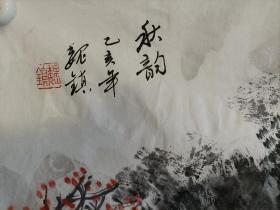 秋韵
乙亥年
魏镇